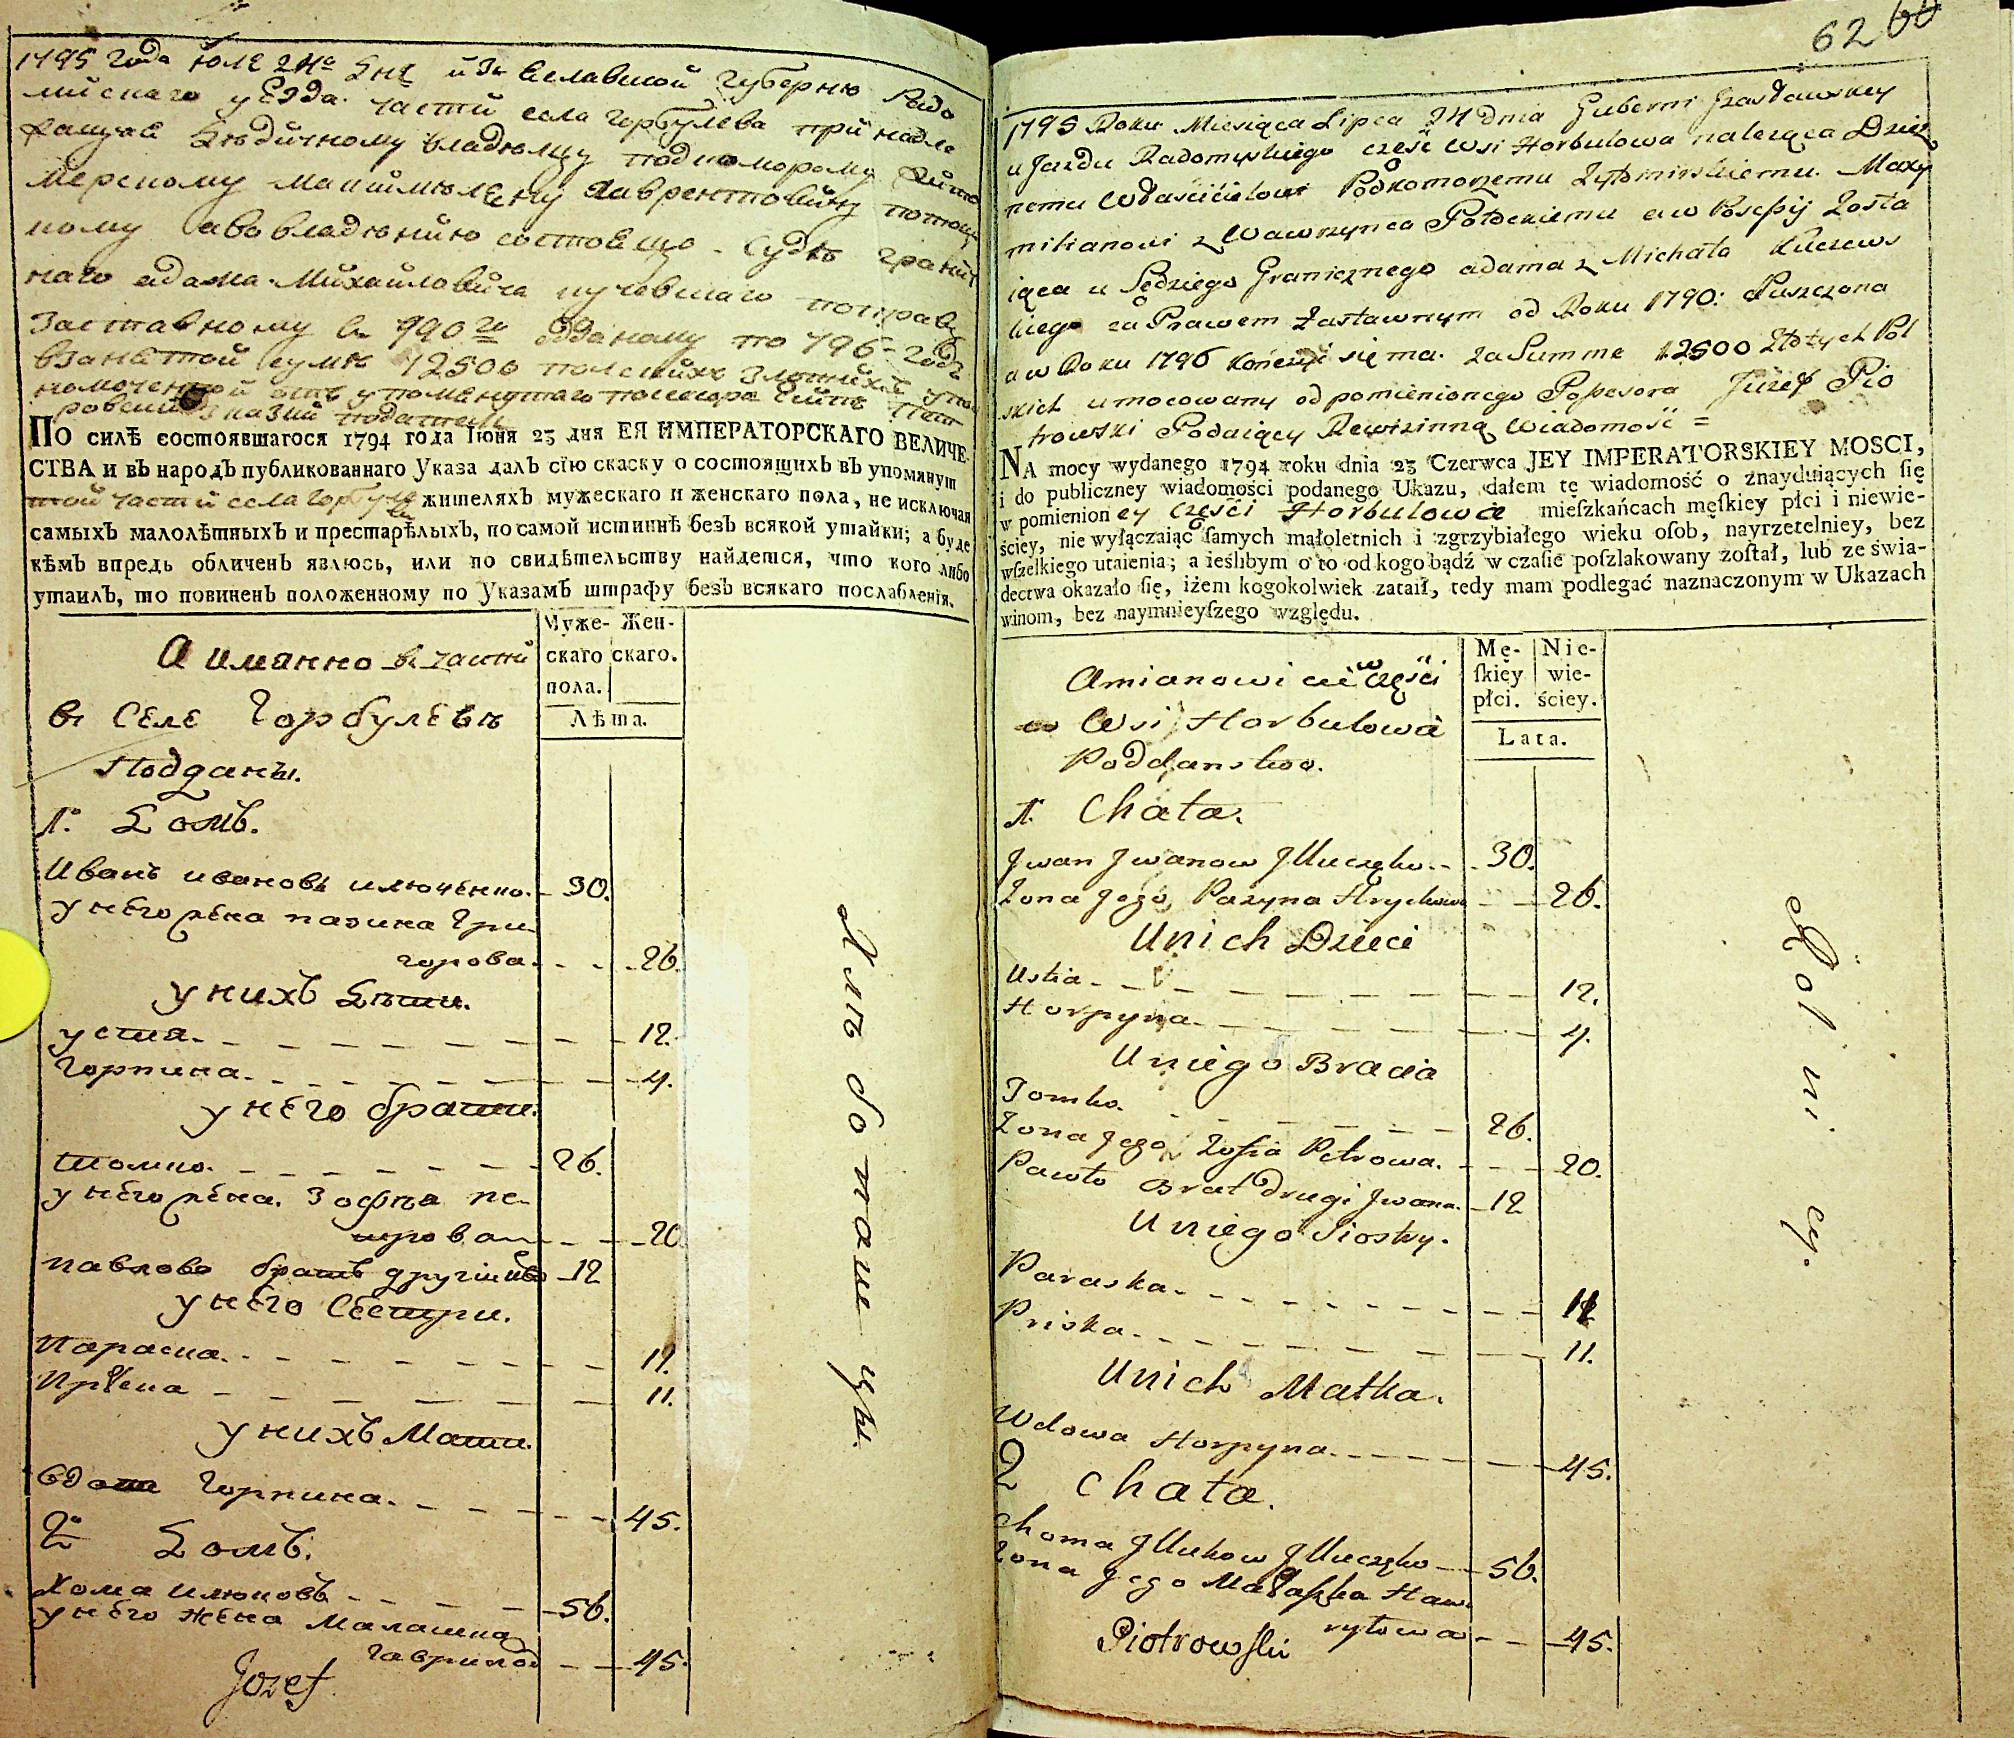 1795 года юля 24го дня изъ Заславской губерню Радо
мискаго уезда. части села Горбулева при надле
жащая дедичному владелцу подкоморому Жито
мерскому Макиймиляну Лаврентовичу потоц
кому аво владению состояща. Суде гранич
наго адама Михайловича кучевскаго по праву
Заставному в 790го отданому по 796 годъ
взанятой суме 12500 полских злотих упол
номоченной отъ упоменутаго посесора Осипъ Пет
ровский сказки податель
ПО силѣ состоявшагося 1794 года Іюня 23 дня ЕЯ ИМПЕРАТОРСКАГО ВЕЛИЧЕ-
СТВА и въ народъ публикованнаго Указа далъ сїю скаску о состоящихъ въ упомянут
той части села Горбулева жителяхъ мужескаго и женскаго пола, не исключая
самыхъ малолѣтныхъ и престарѣлыхъ, по самой истиннѣ безъ всякой утайки; а буде
кѣмъ впредь обличенъ явлюсь, или по свидѣтельству найдется, что кого либо
утаилъ, то повиненъ положенному по Указамъ штрафу безъ всякаго послабленїя.
Муже-скаго пола. Жен-скаго.
Лѣта.
А имянно в части
в Селе Горбулевѣ
Подданы.
1. Домъ.
Иванъ ивановъ илюченко. 30.
у него жена пазина Гри
горова. 26.
у нихъ Дѣти.
устя. 12.
Горпина. 4.
у него брати.
томко. 26.
у него жена. Зофѣя пе
трова 20
павлово братъ другий Ива 12
у него Сестри.
Параска. 11.
Приска 11.
у нихъ Мати.
вдова Горпина. 45.
2 Домъ.
Хома илюковъ 56.
у него жена Малашка
Гаврилов 45.
Jozef
Лит бо паш цы.
62 60
1795 Roku Miesiąca Lipca 24 dnia Guberni Izasławskiey
ujazdu Radomyskiego część Wsi Horbulowa należąca Dziedz
nemu Właścicielowi Podkomorzemu Żytomirskiemu Maxy
milianowi z Wawrzynca Potockiemu a w Possessyi Zosta
iąca u Sędziego Granicznego adama z Michała Kuczews
kiego za Prawem Zastawnym od Roku 1790: Puszczona
a w Roku 1796 kończyć się ma. Za Summe 12500 Złotych Pol
skich umocowany od pomienionego Possesora Jużef Pio
trowski Podaiący Rewizinną Wiadomość =
NA mocy wydanego 1794 roku dnia 23 Czerwca JEY IMPERATORSKIEY MOSCI,
i do publiczney wiadomości podanego Ukazu, dałem tę wiadomość o znayduiących ſię
w pomienioney części Horbulowa mieſzkańcach męſkiey płci i niewie-
ściey, nie wyłączaiąc ſamych małoletnich i zgrzybiałego wieku oſob, nayrzetelniey, bez
wſzelkiego utaienia; a ieślibym o to od kogo bądź w czaſie poſzlakowany zoſtał, lub ze świa-
dectwa okazało ſię, iżem kogokolwiek zataił, tedy mam podlegać naznaczonym w Ukazach
winom, bez naymnieyſzego względu.
Mę-ſkiey płci. Nie-wie-ściey.
Lata.
Amianowicie w części
Wsi Horbulowa
Poddanstwo.
1. Chata.
Jwan Jwanow Jlluczęko 30.
Zona Jego, Pazyna Hrychorowa 26.
Unich Dzieci
Ustia 12.
Horpyna 4.
Uniego Bracia
Tomko. 26.
Zona Jego Zofia Petrowa. 20.
Pawło Brat drugi Jwana. 12
Uniego Siostry.
Paraska. 11
Priska. 11.
Unich Matka.
Wdowa Horpyna. 45.
2 Chata.
Choma Jllukow Jlluczęko 56.
Zona Jego Małaszka Haw
ryłowa 45.
Piotrowski